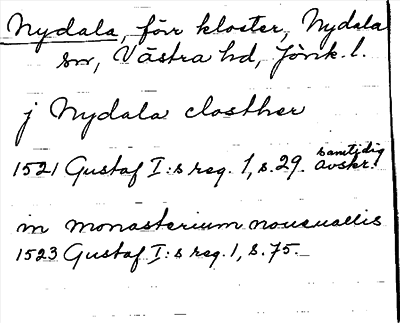 Nydala, förr kloster, Nydala
sn, Västra hd, Jönk. l.
j Nydala closther
1521 Gustaf I:s reg. 1, s. 29. samtidig avskr.!
in monasterium noueuallis
1523 Gustaf I:s reg. 1, s. 75.